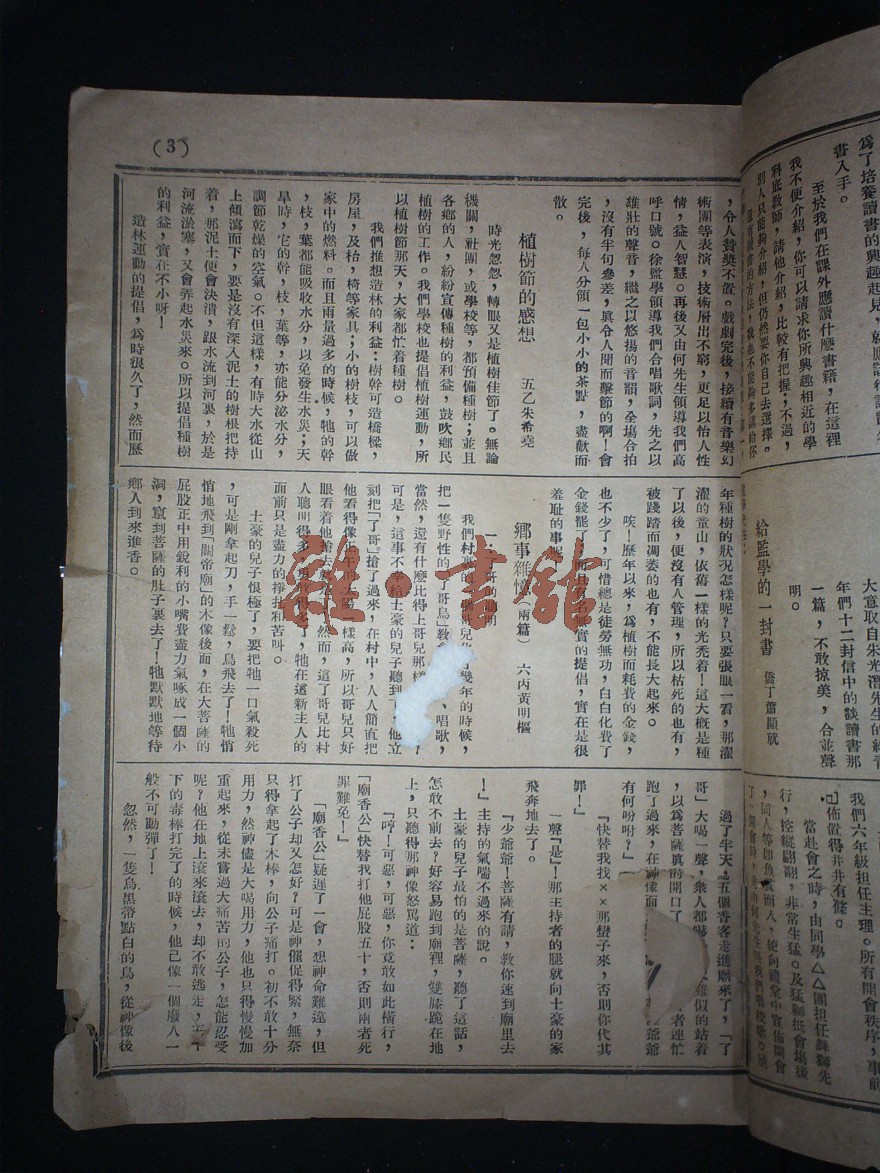 為了培養讀書的興趣起見，就應該
書入手。
至於我們在課外應讀什麼書籍，在這裡
我不便介紹，你可以請求你所興趣相近的學
科底教師，請他介紹，比較有把握；不過，
別人只能夠介紹，但仍然要你自己去選擇。
還有讀書的方法，我也不能夠多講給你
大意取自朱光潛先生的給青
年們十二封信中的談讀書那
一篇，不敢掠美，合並聲
明。
給監學的一封書　僑丁蕭顯就
我們六年級担任主理。所有開會秩序，事前
已佈置得井井有條。
當赴會之時，由同學△△團担任舞獅先
行，控縱翩翩，非常生猛。及猛獅抵會塲後
，同人等卽魚貫而入，便向禮堂中宣佈開會
(3)
，令人贊獎不置。戲劇完後，接續有音樂幻
術團等表演，技術層出不窮，更足以怡人性
情，益人智慧。再後又由何先生領導我們高
呼口號。徐監學領導我們合唱歌詞，先之以
雄壯的聲音，繼之以悠揚的音韻，全塲合拍
，沒有半句參差，眞令人聞而擊節的啊！會
完後，每人分領一包小小的茶點，盡獻而
散。
植樹節的感想　五乙朱希堯
時光忽忽，轉眼又是植樹佳節了。無論
機關，社團，或學校等，都預備種樹；並且
各鄉的人，紛紛宣傳種樹的利益，鼓吹鄉民
植樹的工作。我們學校也提倡植樹運動，所
以植樹節那天，大家都忙着種樹。
我們推想造林的利益：樹幹可造橋樑，
房屋，及枱，椅等家具；小的樹枝，可以做
家中的燃料。而且雨量過多的時候，牠的幹
，枝，葉都能吸收水分，以免發生水災；天
旱時，它的幹，枝，葉等，亦能分泌水分，
調節乾燥的空氣。不但這樣，有時大水從山
上傾瀉而下，要是沒有深入泥土的樹根把持
着，那泥土便會決潰，跟水流到河裏，於是
河流淤塞，又會弄起水災來。所以提倡種樹
的利益，實在不小呀！
造林運動的提倡，爲時很久了，然而歷
年種樹的狀况怎樣呢？只要張眼一看，那濯
濯的童山，依舊一樣的光禿着！這大槪是種
了以後，便沒有人管理，所以枯死的也有，
被踐踏而凋萎的也有，不能長大起來。
唉！歷年以來，爲植樹而耗費的金錢，
也不少了，可惜總是徒勞無功，白白化費了
金錢罷了，而且有名無實的提倡，實在是很
羞耻的事呢
鄉事雜憶（兩篇）　六丙黃明樞
一、
我們村裏的　個哥兒化　幾年的時候，
把一隻野性的「了哥鳥」教　、唱歌，
當然，還有什麼比得上哥兒那樣
可是，這事不幸給土豪的兒子聽到　他立
刻把「了哥」搶了過來，在村中，人人簡直把
他看得像正午的太陽一樣高，所以哥兒只好
眼看着他搶去　　然而，這了哥兒比村
人聰明得多，　　牠在這新主人的
面前只是盡力的掙扎和苦叫。
土豪的兒子恨極了，要把牠一口氣殺死
，可是剛拿起刀，手一鬆，鳥飛去了！牠悄
悄地飛到「關帝廟」的木像後面，在大菩薩的
屁股正中用銳利的小嘴費盡力氣啄成一個小
洞，竄到菩薩的肚子裏去了！牠默默地等待
鄉人到來進香。
過了半天，五個香客走進廟來了，「了
哥」大喝一聲，衆人都嚇　人雖似的站着
，以爲菩薩眞的開口了　　者連忙
跑了過來，在神像面　　爺爺
有何吩咐？」
「快替我找××那蠻子來，否則你代其
罪！」
一聲「是」！那主持者的腿就向土豪的家
飛奔地去了。
「少爺爺！菩薩有請，敎你速到廟里去
！」主持的氣喘不過來的說。
土豪的兒子最怕的是菩薩，聽了這話，
怎敢不前去？好容易跑到廟裡，雙膝跪在地
上，只聽得那神像怒罵道：
「哼！可惡，可惡，你竟敢如此橫行，
「廟香公」快替我打他屁股五十，否則兩者死
罪難免！」
「廟香公」疑遲了一會，想神命難違，但
打了公子却又怎好？可是神催促得緊，無奈
只得拿起了木棒，向公子痛打。初不敢十分
用力，然神儘是大喝用力，他也只得慢慢加
重起來，從未嘗過大痛苦的公子，怎能忍受
呢？他在地上滾來滾去，却不敢逃走，五十
下的毒棒打完了的時候，他已像一個廢人一
般不可動彈了！
忽然，一隻烏黑帶點白的鳥，從神像後